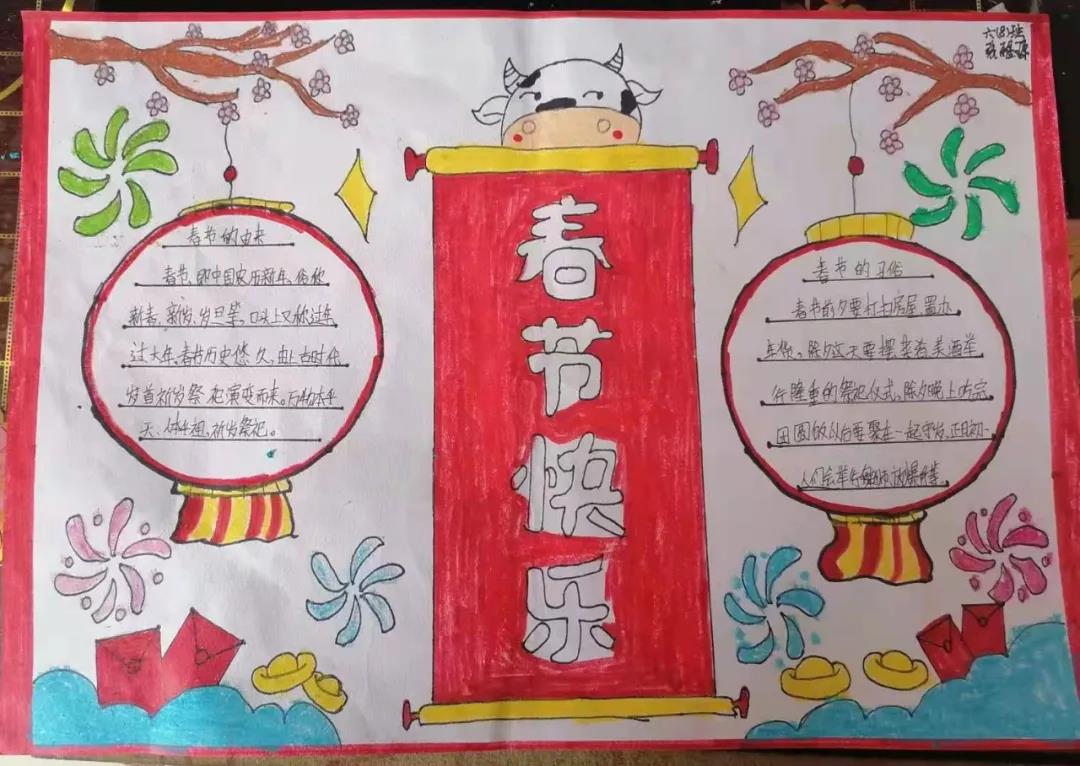 六(8)班
春节快乐
春节的由来
春节,即中国农历新年,俗称
新春、新岁、岁旦等,口头上又称过年
过大年,春节历史悠久,由上古时代
岁首祈岁祭祀演变而来。万物本乎
天、人本乎祖,祈岁祭祀。
春节的习俗
春节前夕要打扫房屋,置办
年货。除夕这天要摆美酒举
行隆重的祭祀仪式,除夕晚上吃完
团圆饭以后要聚在一起守岁,正月初一
人们会举行放爆竹等